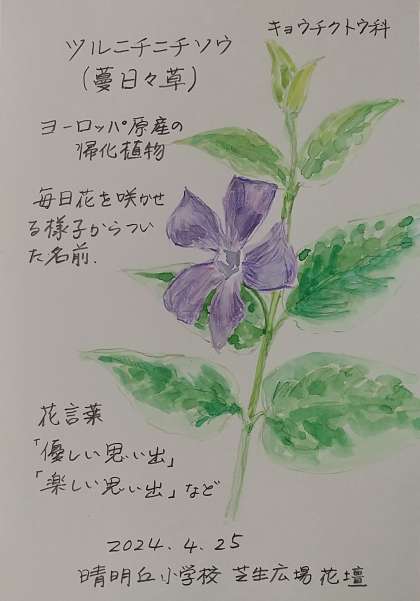 キョウチクトウ科
ツルニチニチソウ
(蔓日々草)
ヨーロッパ原産の
帰化植物
毎日花を咲かせ
る様子からつい
た名前.
花言葉
「優しい思い出」
「楽しい思い出」など
2024.4.25
晴明丘小学校 芝生広場 花壇